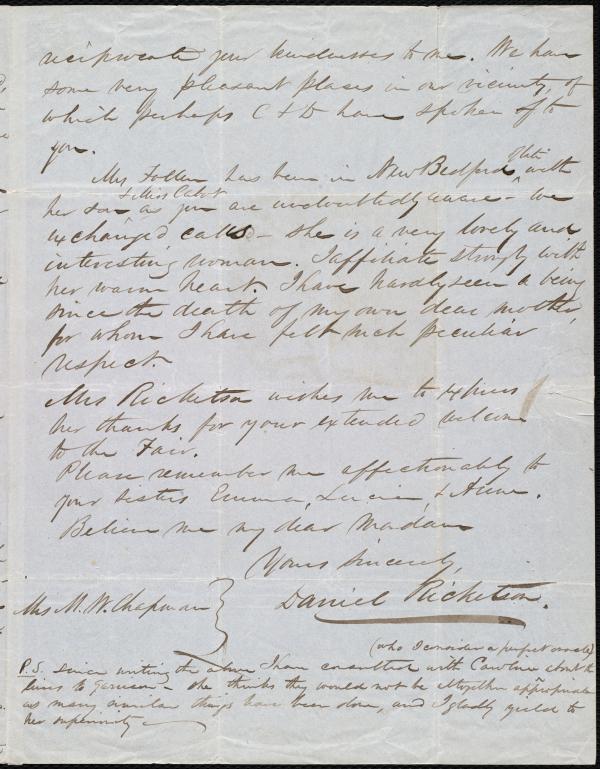 reciprocate your kindnesses to me. We have
some very pleasant places in our vicinity, of
which perhaps C & D have spoken of to
you.
Mrs Follen has been in New Bedford of late with
her son & Miss Cabot as you are undoubtedly aware - we
exchanged calls - she is a very lovely and
interesting woman. I affiliate strongly with
her warm heart. I have hardly seen a being
since the death of my own dear mother,
for whom I have felt such peculiar
respect.
Mrs Ricketson wishes me to express
her thanks for your extended welcome
to the Fair.
Please remember me affectionately to
your sisters Emma, Lucia, & Anne.
Believe me my dear Madam
Yours sincerely,
Daniel Ricketson.
Mrs M. W. Chapman
(who I consider a perfect oracle)
P.S. since writing the above I have consulted with Caroline about the
lines to Garrison - she thinks they would not be altogether appropriate
as many similar things have been done, and I gladly yield to
her superiority